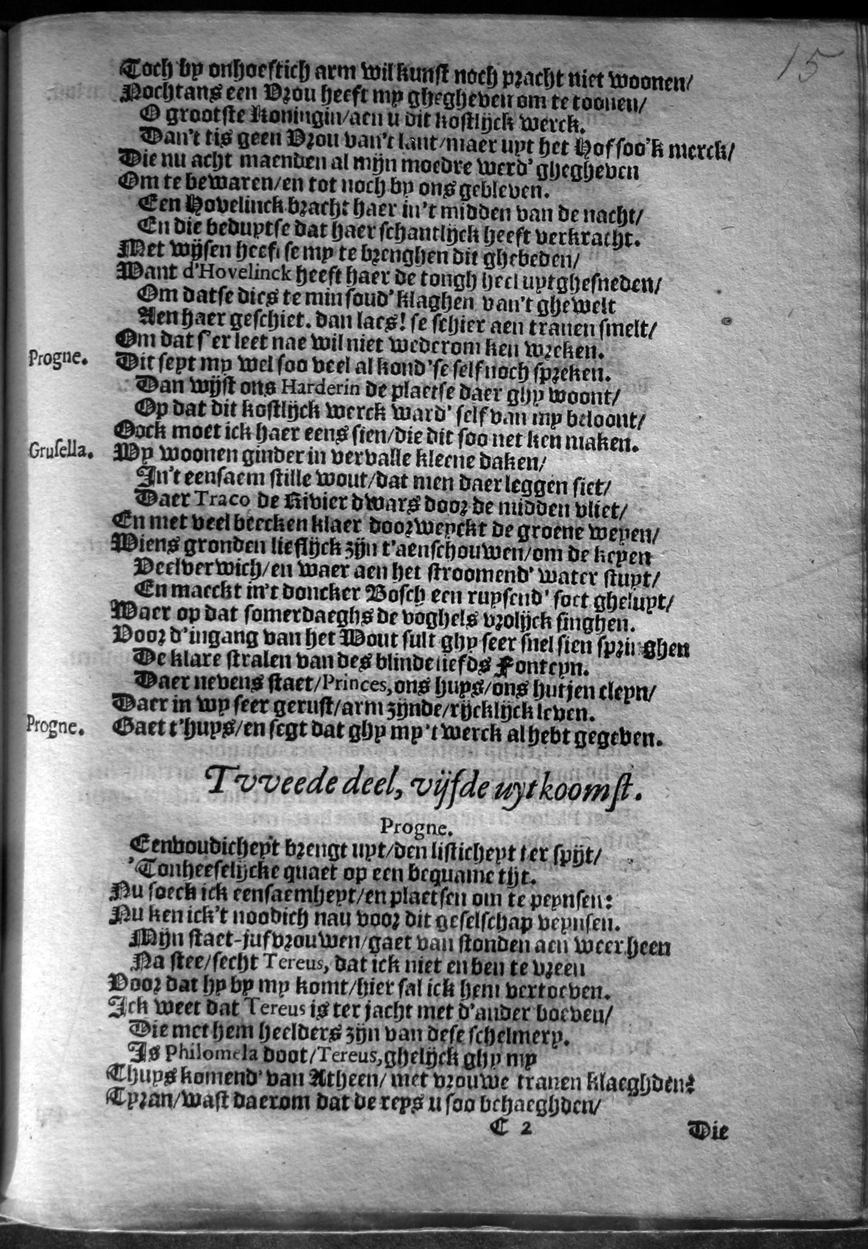 15
Toch by onhoeftich arm wil kunst noch pracht niet woonen/
Nochtans een Vrou heeft my ghegheven om te toonen/
O grootste Koningin/aen u dit kostlijck werck.
Dan't tis geen Vrou van't lant/maer uyt het Hof soo'k merck/
Die nu acht maenden al mijn moedre werd' ghegheven
Om te bewaren/en tot noch by ons gebleven.
Een Hovelinck bracht haer in't midden van de nacht/
En die beduytse dat haer schantlijck heeft verkracht.
Met wijsen heeft se my te brenghen dit ghebeden/
Want d'Hovelinck heeft haer de tongh heel uytghesneden/
Om datse dies te min soud' klaghen van't ghewelt
Aen haer geschiet. dan laes! se schier aen tranen smelt/
Om dat s'er leet nae wil niet wederom ken wreken.
Progne. Dit seyt my wel soo veel al kond'se self noch spreken.
Dan wijst ons Harderin de plaetse daer ghy woont/
Op dat dit kostlijck werck ward' self van my beloont/
Oock moet ick haer eens sien/die dit soo net ken maken.
Grusella. Wy woonen ginder in vervalle kleene daken/
In't eensaem stille wout/dat men daer leggen siet/
Daer Traco de Rivier dwars door de midden vliet/
En met veel beecken klaer doorweyckt de groene weyen/
Wiens gronden lieflijck zijn t'aenschouwen/om de keyen
Veelverwich/en waer aen het stroomend' water stuyt/
En maeckt in't doncker Bosch een ruysend' soet gheluyt/
Waer op dat somerdaeghs de voghels vrolijck singhen.
Voor d'ingang van het Wout sult ghy seer snel sien springhen
De klare stralen van des blinde liefds Fonteyn.
Daer nevens staet/Princes, ons huys/ons hutjen cleyn/
Daer in wy seer gerust/arm zijnde/rijcklijck leven.
Progne. Gaet t'huys/en segt dat ghy my 't werck al hebt gegeven.
Tvveede deel, vijfde uytkoomst.
Progne.
Eenvoudicheyt brengt uyt/den listicheyt ter spijt/
'Tonheeselijcke quaet op een bequame tijt.
Nu soeck ick eensaemheyt/en plaetsen om te peynsen:
Nu ken ick't noodich nau voor dit geselschap veynsen.
Mijn staet-jufvrouwen/gaet van stonden aen weer heen
Na stee/secht Tereus, dat ick niet en ben te vreen
Voor dat hy by my komt/hier sal ick hem vertoeven.
Ick weet dat Tereus is ter jacht met d'ander boeven/
Die met hem heelders zijn van dese schelmery.
Is Philomela doot/Tereus, ghelijck ghy my
Thuys komend' van Atheen/met vrouwe tranen klaeghden?
Tyran/wast daerom dat de reys u soo behaeghden/
C 2 Die